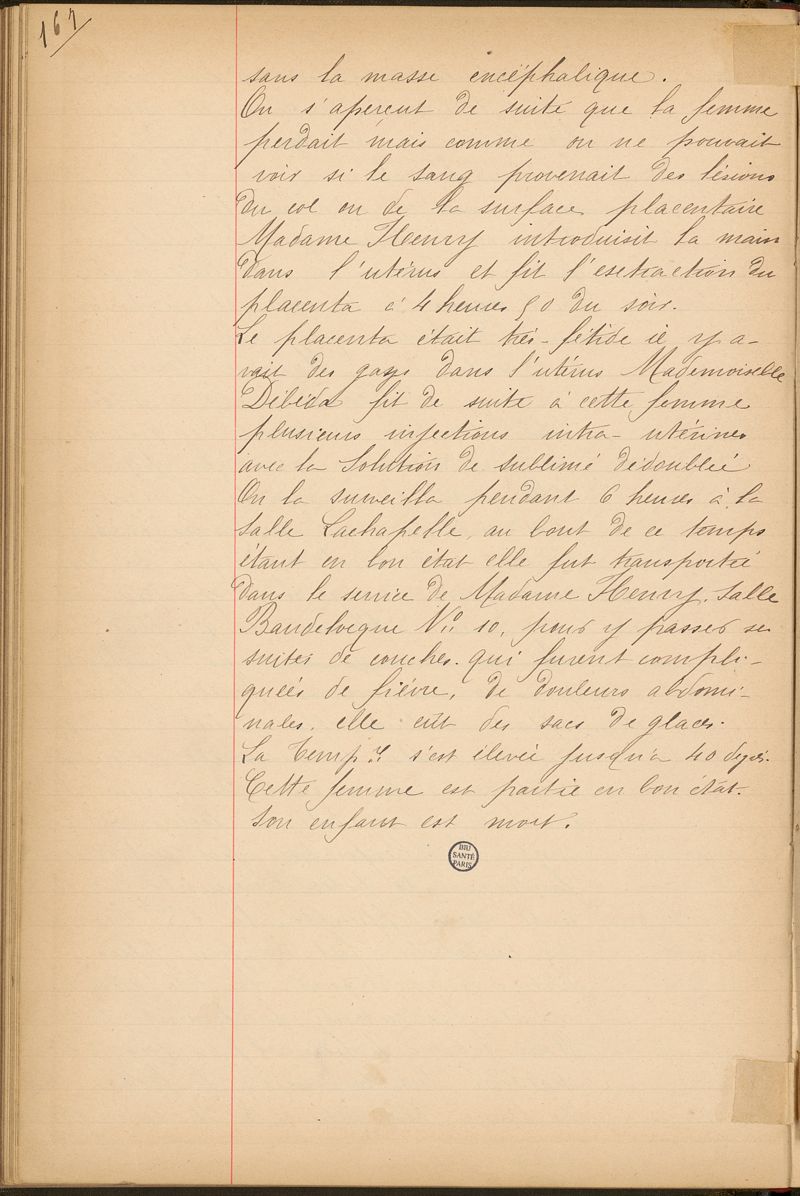 167
sans la masse encéphalique.
On s'aperçut de suite que la femme
perdait mais comme on ne pouvait
voir si le sang provenait des lésions
du col ou de la surface placentaire
Madame Henry introduisit la main
dans l'utérus et fit l'extraction du
placenta à 4 heures 50 du soir.
Le placenta était très-fétide il y a-
vait des gazs dans l'utérus Mademoiselle
fit de suite à cette femme
plusieurs injections intra-utérines
avec la Solution de sublimé dédoublée
On la surveilla pendant 6 heures à la
salle Lachapelle, au bout de ce temps
étant en bon état elle fut transportée
dans le service de Madame Henry. Salle
Baudelocque No 10, pour y passer ses
suites de couches. qui furent compli-
quées de fièvre, de douleurs abdomi-
nales. elle eût des sacs de glaces.
La Temp.re s'est élevée jusqu'à 40 degrés.
Cette femme est partie en bon état.
Son enfant est mort.
BIU
SANTÉ
PARIS